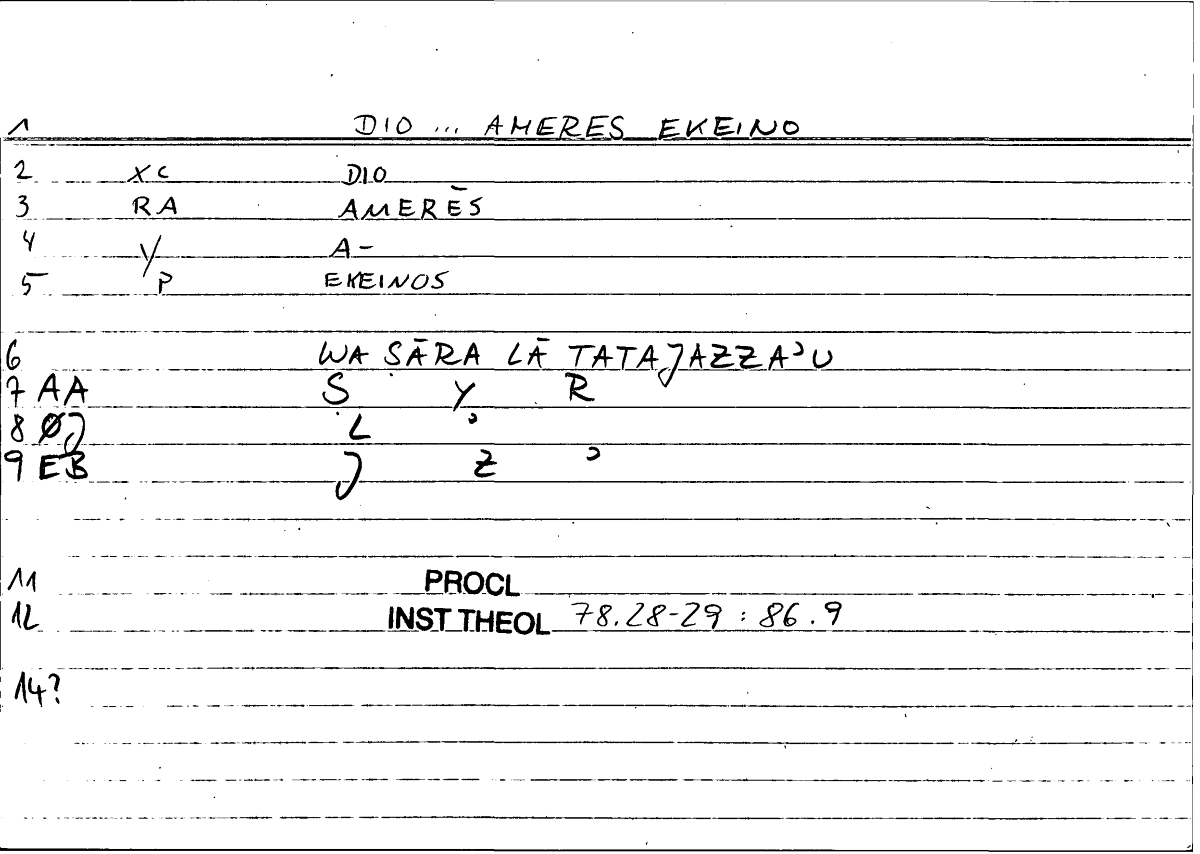 1 DIO ... AMERES EKEINO
2 XC DIO
3 RA AMERĒS
4 Y A-
5 P EKEINOS
6 WA SĀRA LĀ TATAJAZZAʾU
7 AA S Y R
8 ØJ L ʾ
9 EB J Z ʾ
11 PROCL
12 INST THEOL 78.28-29 : 86.9
14?